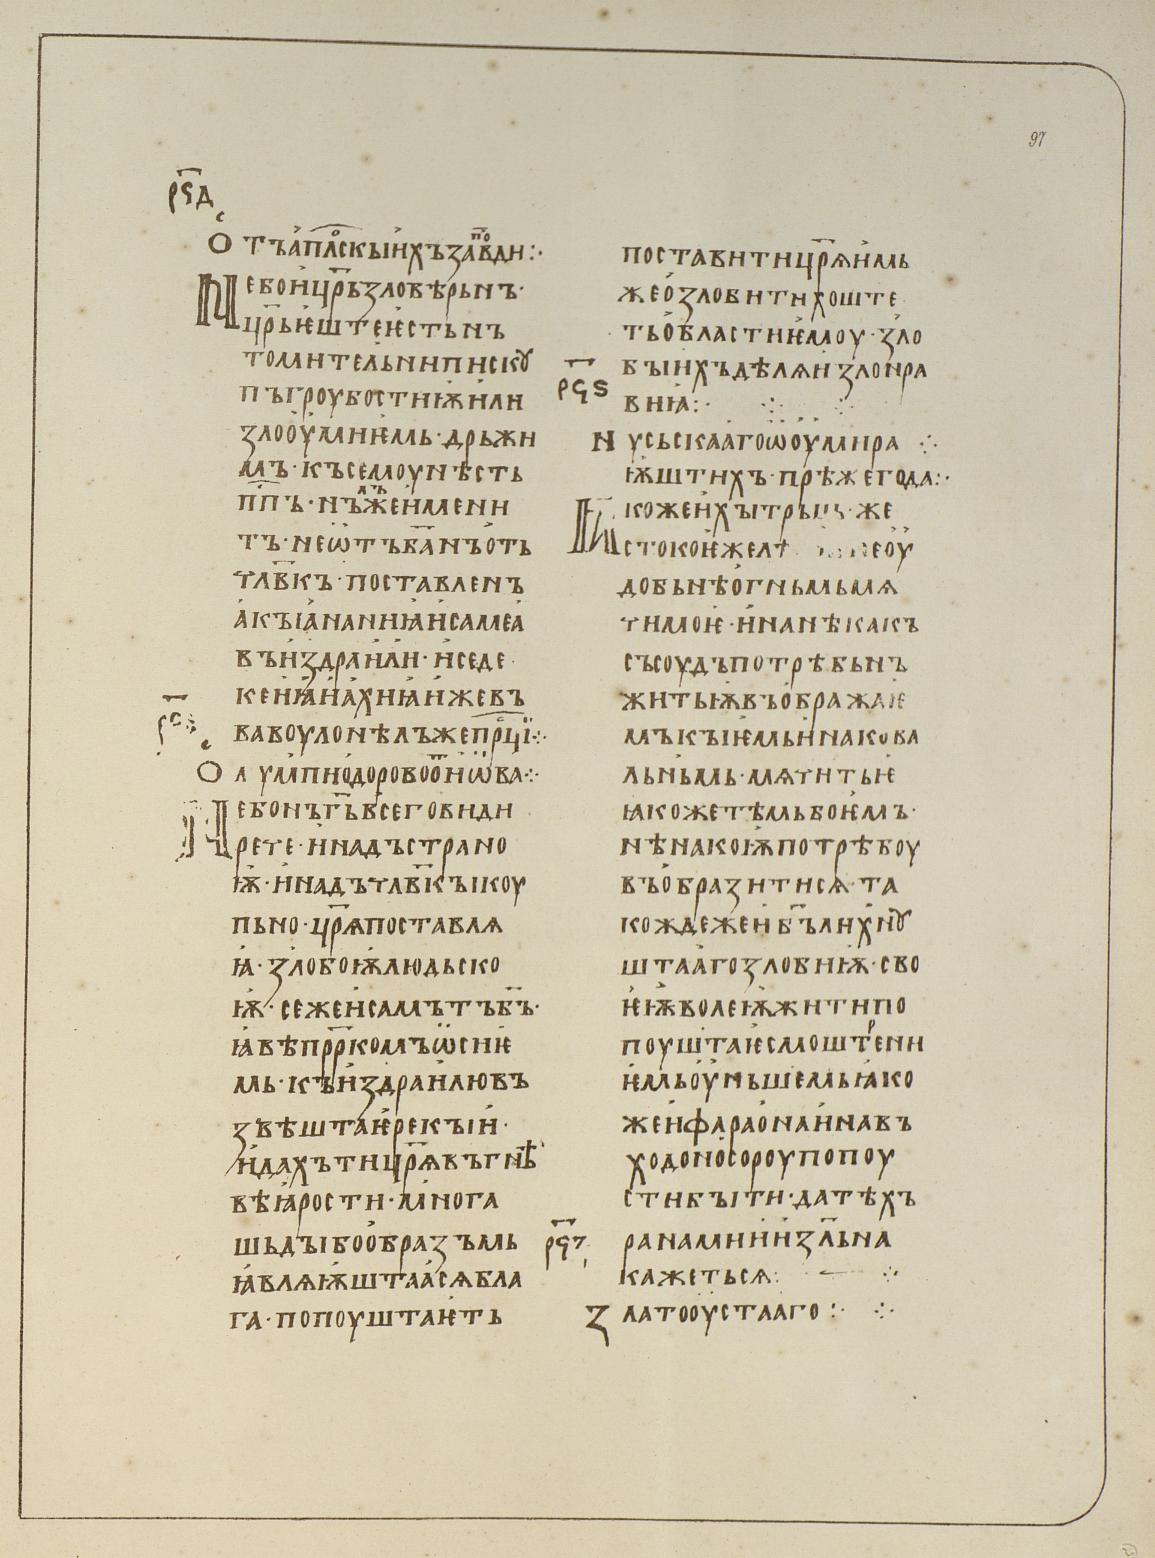 97
р҃ч҃д
отъап҃лскыихъзап҃овди:·
Небоиц҃рьзловѣрьнъ·
ц҃рьѥштеѥстьнъ
томительнипискꙋ
пъгроубостиѭили
злооумиѥмь·дрьжи
мъ·късемоунѣсть
п҃пъ·нълъжеименн
тъ·неѿтъб҃анъотъ
тл҃вкъ·поставленъ
акыананиꙗисамеа
въиздраили·иседе
кеиꙗнахиꙗижевъ
вавоулонѣлъжепр҃ци:·
ѻлумпиодоровоѿиѡва·:·
Небонъг҃ьвсеговиди
рете·инадъстрано
ѭ·инадътл҃вкъıкоу
пьно·ц҃рѧпоставлѧ
ꙗ·злобоѭлюдьско
ѭ·сежеисамътъб҃ъ·
ꙗвѣпр҃ркомъѡсиѥ
мь·къиздраилювъ
звѣштаѥрекыи·
идахътиц҃рѧвъгнѣ
вѣꙗрости·многа
шьдыбообразъмь
ꙗвлѧѭштаасѧбла
га·попоуштаѥть
поставитиц҃рѧимь
жеозлобитихоште
тьобластиѥмоу·зло
быихъдѣлѧизлонра
р҃ч҃ѕ
виꙗ:·
нусьскаагоѡоумира
ѭштихъ·прѣжегода:·
ꙗкожеихытрьць·же
добьнѣогньмьмѧ
тимоѥ·инанѣкакъ
съсоудъпотрѣбьнъ
житьѭвъображаѥ
мъкыѥмьинакова
льньмь·мѧтитьѥ
ꙗкожетѣмьбоѥмъ·
нѣнакоѭпотрѣбоу
въобразитисѧ·та
кождежеиб҃ълихнꙋ
штаагозлобиѭ·сво
ѥѭволеѭжитипо
поуштаѥсмоштрени
ѥмьоуньшемьꙗко
жеифараонаинавъ
ходоносороупопоу
стибыти·датѣхъ
ранамиииз҃льна
р҃ч҃з
кажеться:
златооустааго:·